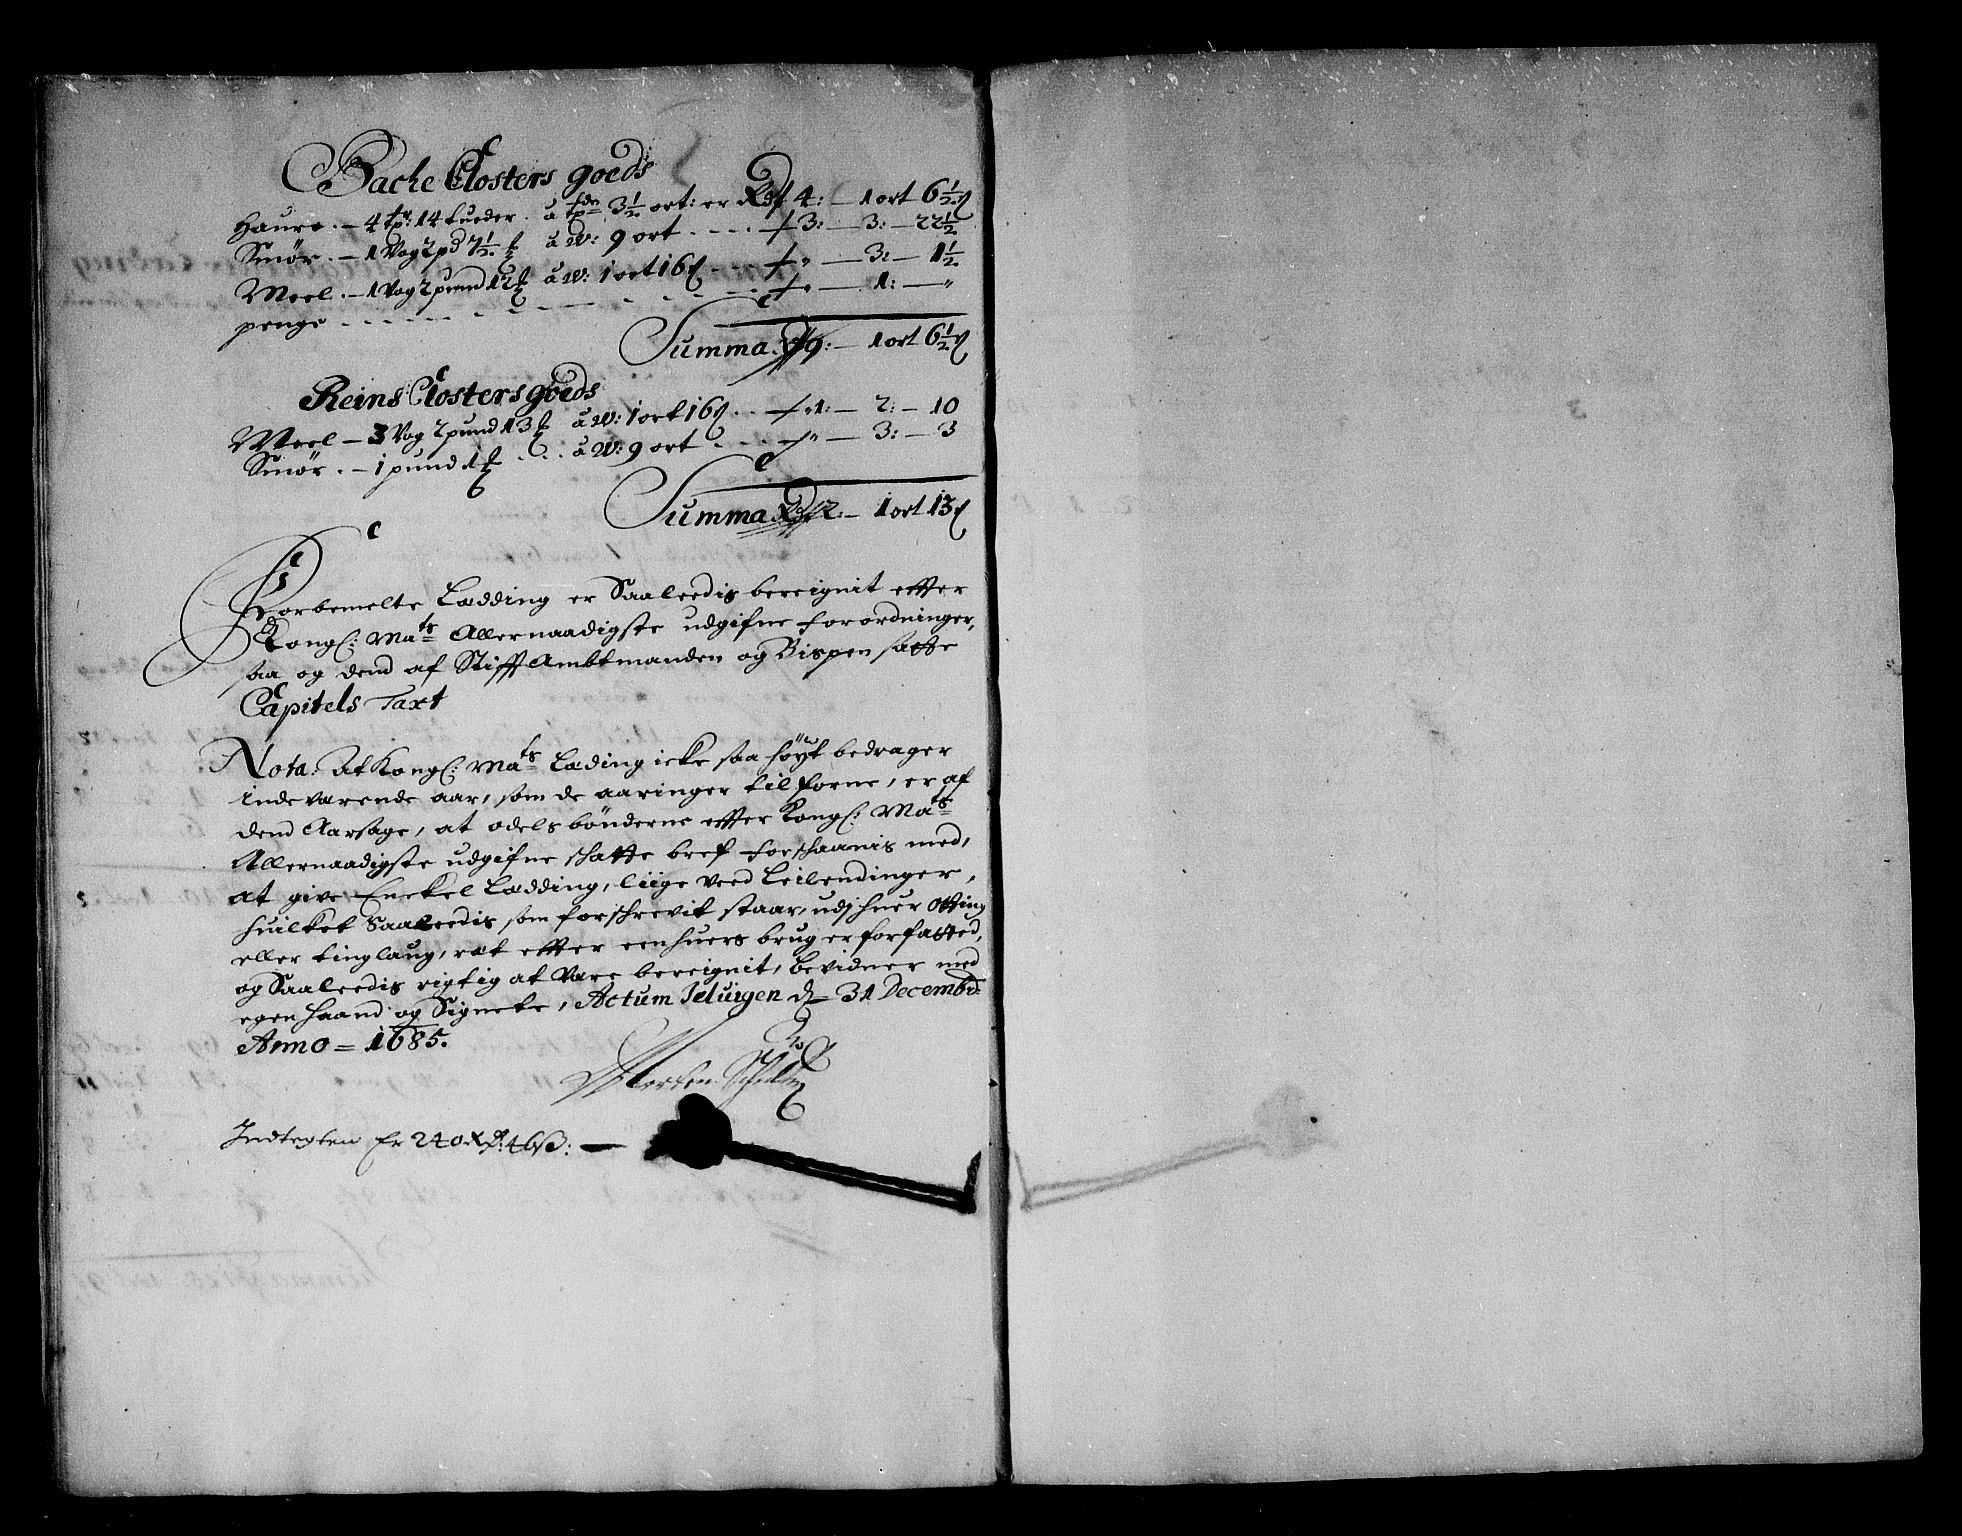 Bache Closters goeds
Haure. – 4 tør: 14 Lueder. à tdr 3 1/2 ort: er Rdr 4: – 1 ort 6 1/2 s
Smør. – 1 Vog 2 pd 7 1/2 à W: 9 ort . . . . 3: – 3: – 22 1/2
Meel. – 1 Vog 2 pund 12 à W: 1 ort 16 s . . . „ – 3: – 1 1/2
penge . . . . . . . . „ – 1: – „
Summa. 9: – 1 ort 6 1/2 s
Reins Closters goeds
Meel – 3 Vog 2 pund 13 à W: 1 ort 16 s . . 1: – 2: – 10
Smør. – 1 pund 1 . . . à W: 9 ort . . . . „ – 3: – 3
Summa Rdr 2: – 1 ort 13 s
Forbemelte Ledding er Saaleedis bereignit effter
Kongl: Mats Allernaadigste udgifne forordninger,
saa og dend af Stifft Ambtmanden og Bispen satte
Capitels Taxt
Nota: At Kongl: Mats Leding icke saa høyt bedrager
indeværende aar, som de aaringer tilforne, er af
dend Aarsage, at odelsbønderne effter Kongl: Mats
Allernaadigste udgifne schatte bref forschaanis med,
at give Enckel Ledding, liige veed Leilendinger,
huilket Saaleedis som forschrevit staar, udj huer Otting
eller tinglaug, ret effter een huers brug er forfatted,
og Saaleedis rigtig at Være bereignit, bevidner med
egen haand og Signete, Actum Teluigen d 31 Decembr:
Anno = 1685.
Morten Schultz
Indtegten Er 240 Rd: 46 ß: –